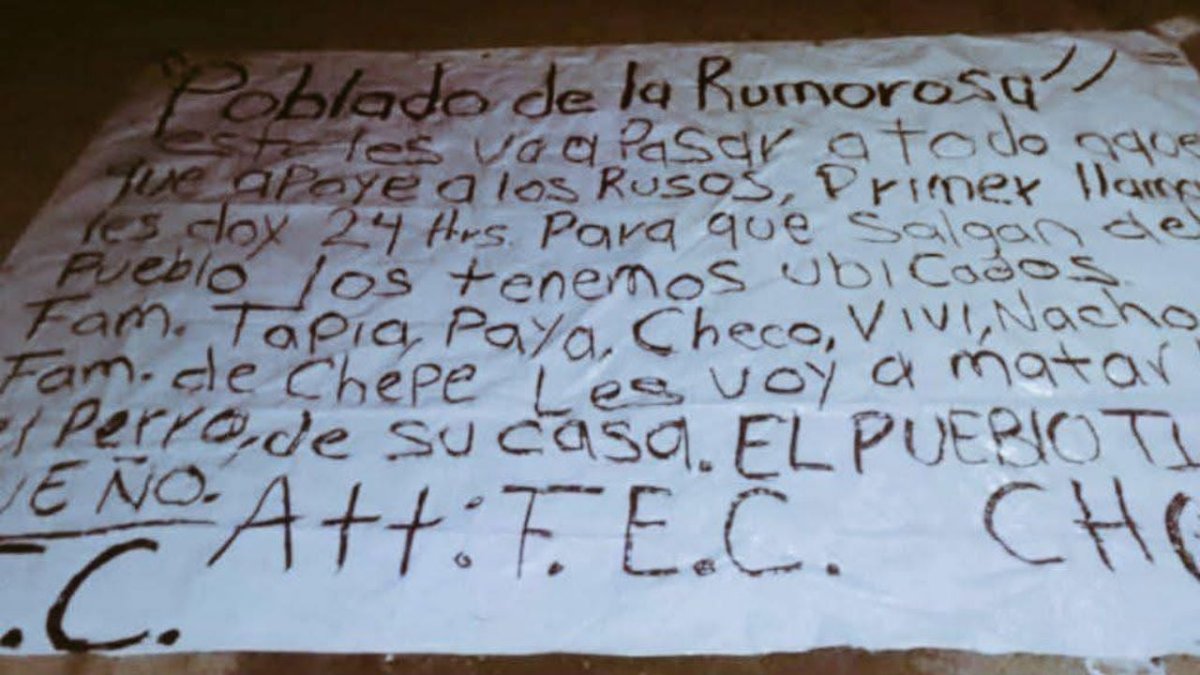 "Poblado de la Rumorosa"
esto les va a Pasar a todo aque
que apoye a los Rusos, Primer llama
les doy 24 Hrs. Para que Salgan del
Pueblo los tenemos ubicados.
Fam. Tapia, Paya, Checo, Vivi, Nacho
Fam. de Chepe Les voy a matar
el Perro, de su casa. EL PUEBlO TI
UEÑO. Att: T.E.C. CH
.C.